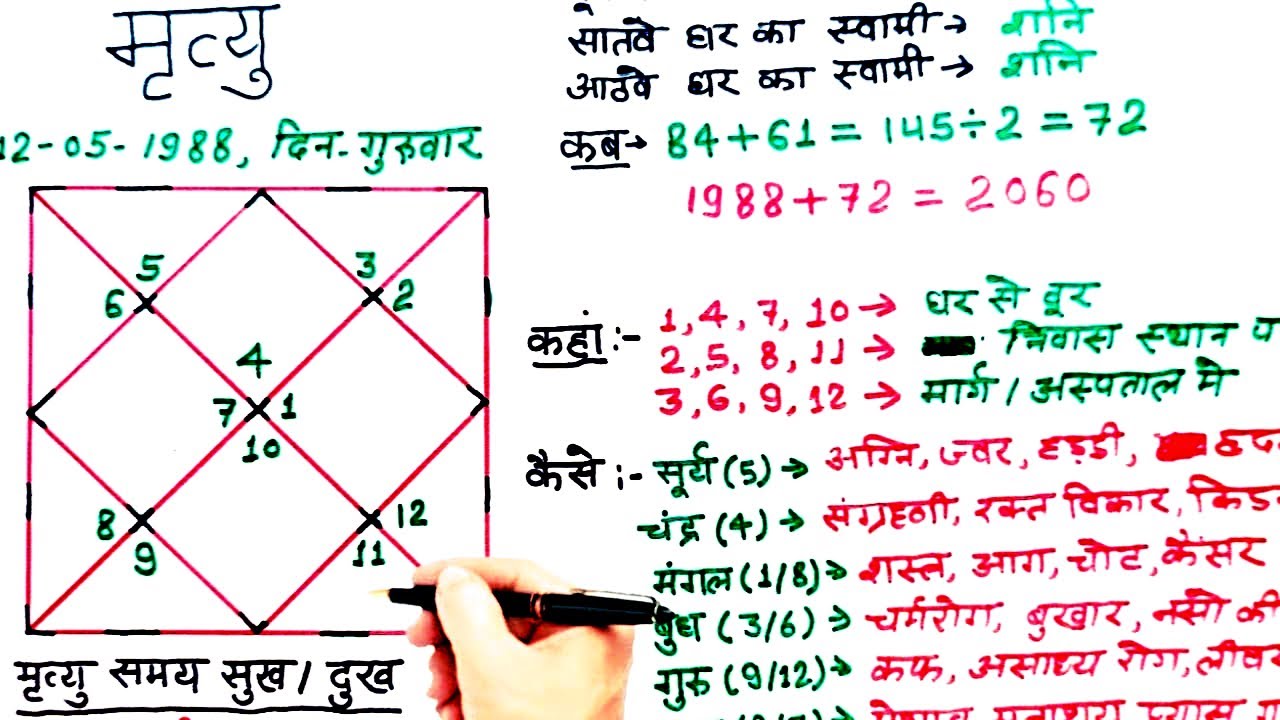 मृत्यु
12-05-1988, दिन-गुरुवार
5
3
6
2
4
7
1
10
8
12
9
11
मृत्यु समय सुख / दुख
सातवे घर का स्वामी → शनि
आठवे घर का स्वामी → शनि
कब→ 84+61 = 145÷2 = 72
1988+72 = 2060
कहां:- 1, 4, 7, 10 → घर से दूर
2, 5, 8, 11 → निवास स्थान प
3, 6, 9, 12 → मार्ग / अस्पताल मे
कैसे:- सूर्य (5) → अग्नि, ज्वर, हड्डी,
चंद्र (4) → संग्रहणी, रक्त विकार,
मंगल (1/8)→ शस्त्र, आग, चोट, कैंसर
बुध (3/6) → चर्मरोग, बुखार, नसो की
गुरु (9/12)→ कफ, असाध्य रोग, लीवर